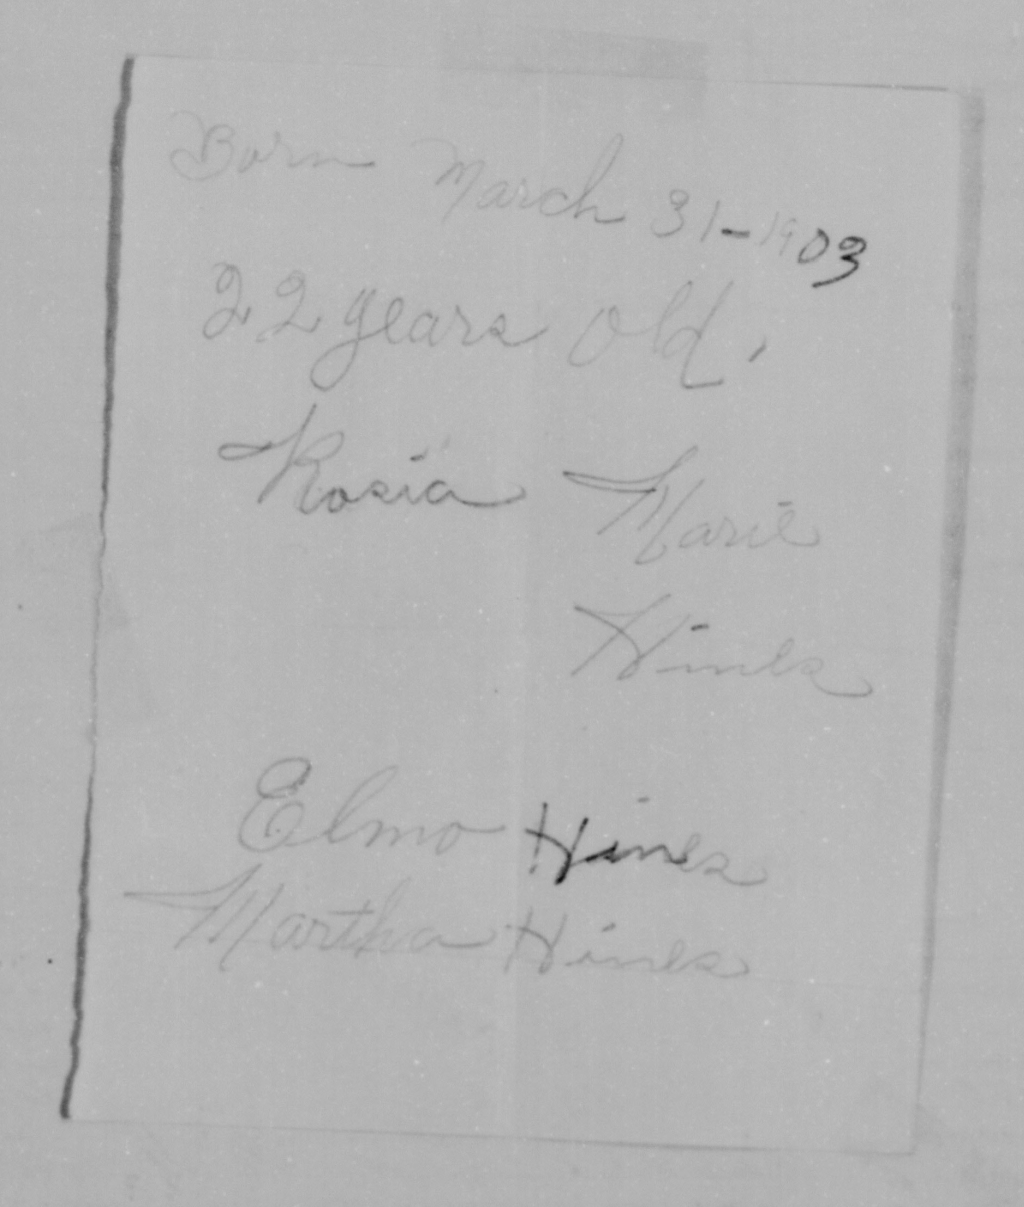 Born March 31-1903
22 years old.
Rosia Marie
Hines
Elmo Hines
Martha Hines